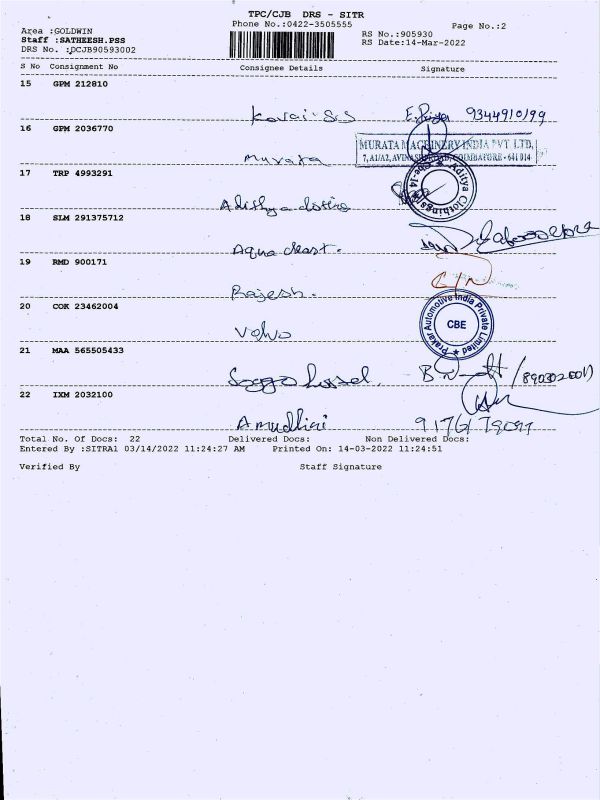 TPC/CJB DRS - SITR
Phone No.:0422-3505555
Page No.:2
Area :GOLDWIN
Staff :SATHEESH.PSS
DRS No. :DCJB90593002
RS No.:905930
RS Date:14-Mar-2022
S No Consignment No Consignee Details Signature
15 GPM 212810
Kovai-S.S E.Priya 9344910199
16 GPM 2036770
Murata
MURATA MACHINERY INDIA PVT. LTD,
7, A1/A2, AVINASHI ROAD, COIMBATORE - 641 014
17 TRP 4993291
Aditya Clothings
Cbe-14
18 SLM 291375712
Aqua
19 RMD 900171
Rajesh.
20 COK 23462004
Volvo
Prakar Automotive India Private Limited
CBE
21 MAA 565505433
22 IXM 2032100
Total No. Of Docs: 22 Delivered Docs: Non Delivered Docs:
Entered By :SITRA1 03/14/2022 11:24:27 AM Printed On: 14-03-2022 11:24:51
Verified By Staff Signature